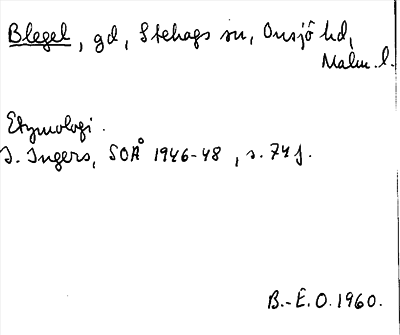 Blegel, gd, Stehags sn, Onsjö hd,
Malm. l.
Etymologi.
I. Ingers, SOÅ 1946-48, s. 74 f.
B.-E.O. 1960.